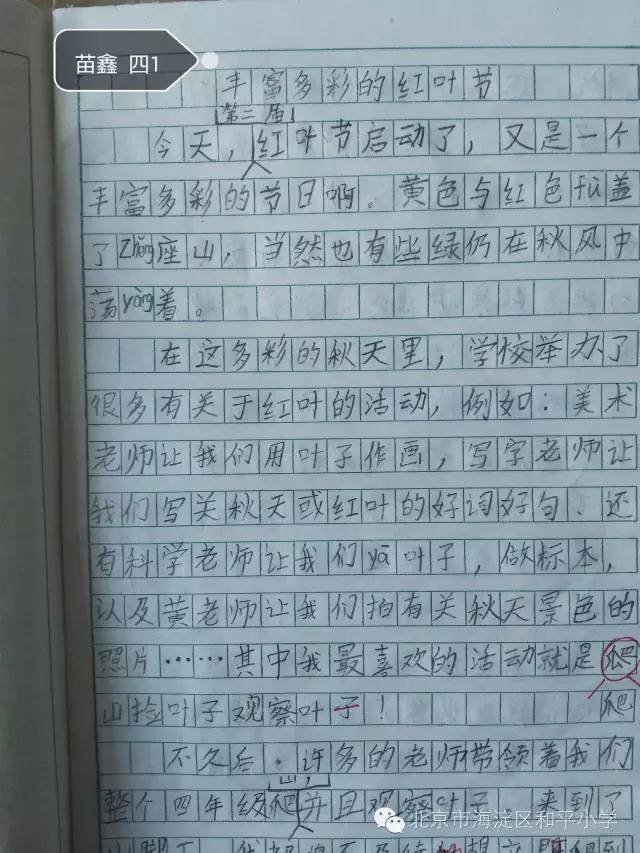 苗鑫 四1
丰富多彩的红叶节
第二届
今天，红叶节启动了，又是一个
丰富多彩的节日啊。黄色与红色fù盖
了zhěng座山，当然也有些绿仍在秋风中
荡yàng着。
在这多彩的秋天里，学校举办了
很多有关于红叶的活动，例如：美术
老师让我们用叶子作画，写字老师让
我们写关秋天或红叶的好词好句、还
有科学老师让我们yā叶子，做标本，
以及黄老师让我们拍有关秋天景色的
照片……其中我最喜欢的活动就是爬
山捡叶子观察叶子！爬
不久后，许多的老师带领着我们
山，
整个四年级爬并且观察叶子。来到了
北京市海淀区和平小学
山脚下，我都迫不及待的想立